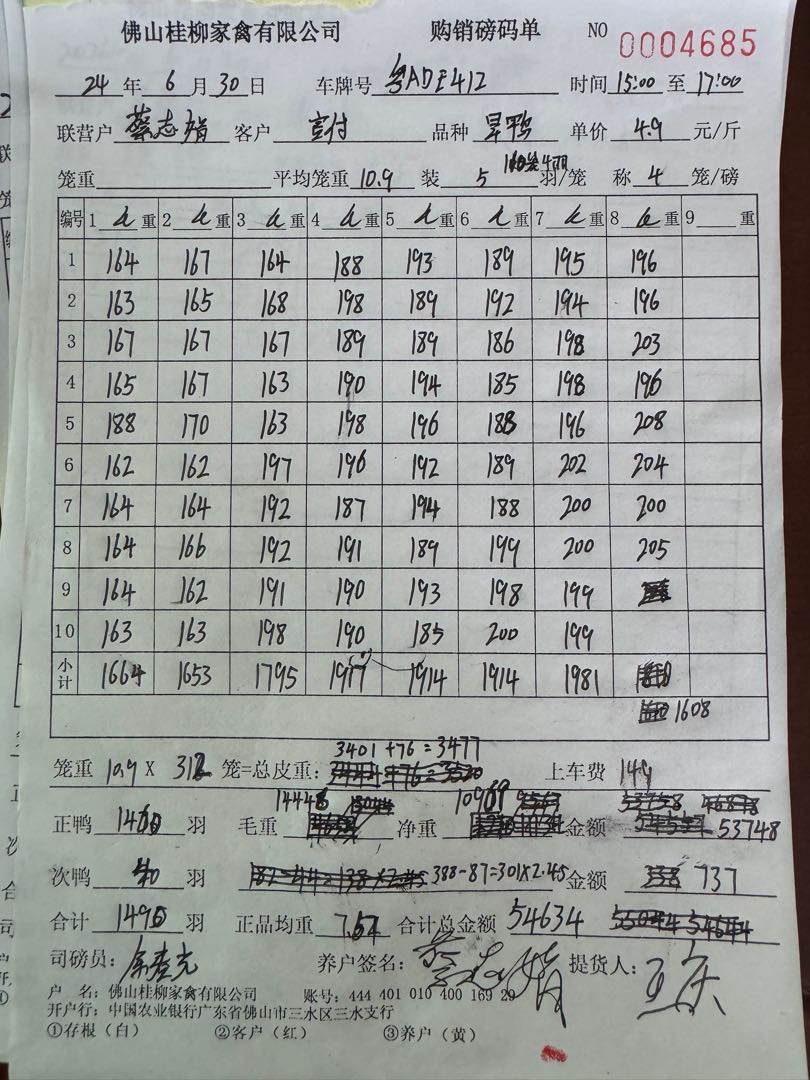 佛山桂柳家禽有限公司 购销磅码单 NO 0004685
24 年 6 月 30 日 车牌号 粤ADE412 时间 15:00 至 17:00
联营户 蔡志娟 客户 品种 旱鸭 单价 4.9 元/斤
笼重 平均笼重 10.9 装 5 羽/笼 称 4 笼/磅
编号 1 重 2 重 3 重 4 重 5 重 6 重 7 重 8 重 9 重
1 164 167 164 188 193 189 195 196
2 163 165 168 198 189 192 194 196
3 167 167 167 189 189 186 198 203
4 165 167 163 190 194 185 198 196
5 188 170 163 198 196 188 196 208
6 162 162 197 196 192 189 202 204
7 164 164 192 187 194 188 200 200
8 164 166 192 191 189 199 200 205
9 164 162 191 190 193 198 199
10 163 163 198 190 185 200 199
小计 1664 1653 1795 1917 1914 1914 1981
1608
3401+76=3477
笼重 10.9 X 312 笼=总皮重: 上车费 149
14446 10969
正鸭 1460 羽 毛重 净重 金额 53748
次鸭 40 羽 388-87=301X2.45 金额 737
合计 1490 羽 正品均重 7.54 合计总金额 54634
司磅员: 养户签名: 蔡志娟 提货人:
户 名: 佛山桂柳家禽有限公司 账号: 444 401 010 400 169 29
开户行: 中国农业银行广东省佛山市三水区三水支行
①存根(白) ②客户(红) ③养户(黄)